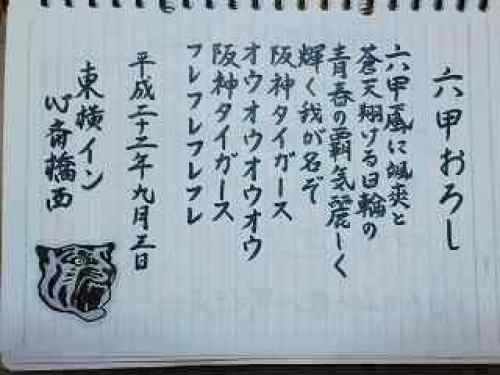 六甲おろし
六甲颪に颯爽と
蒼天翔ける日輪の
青春の覇気麗しく
輝く我が名ぞ
阪神タイガース
オウオウオウオウ
阪神タイガース
フレフレフレフレ
平成二十二年九月三日
東横イン
心斎橋西